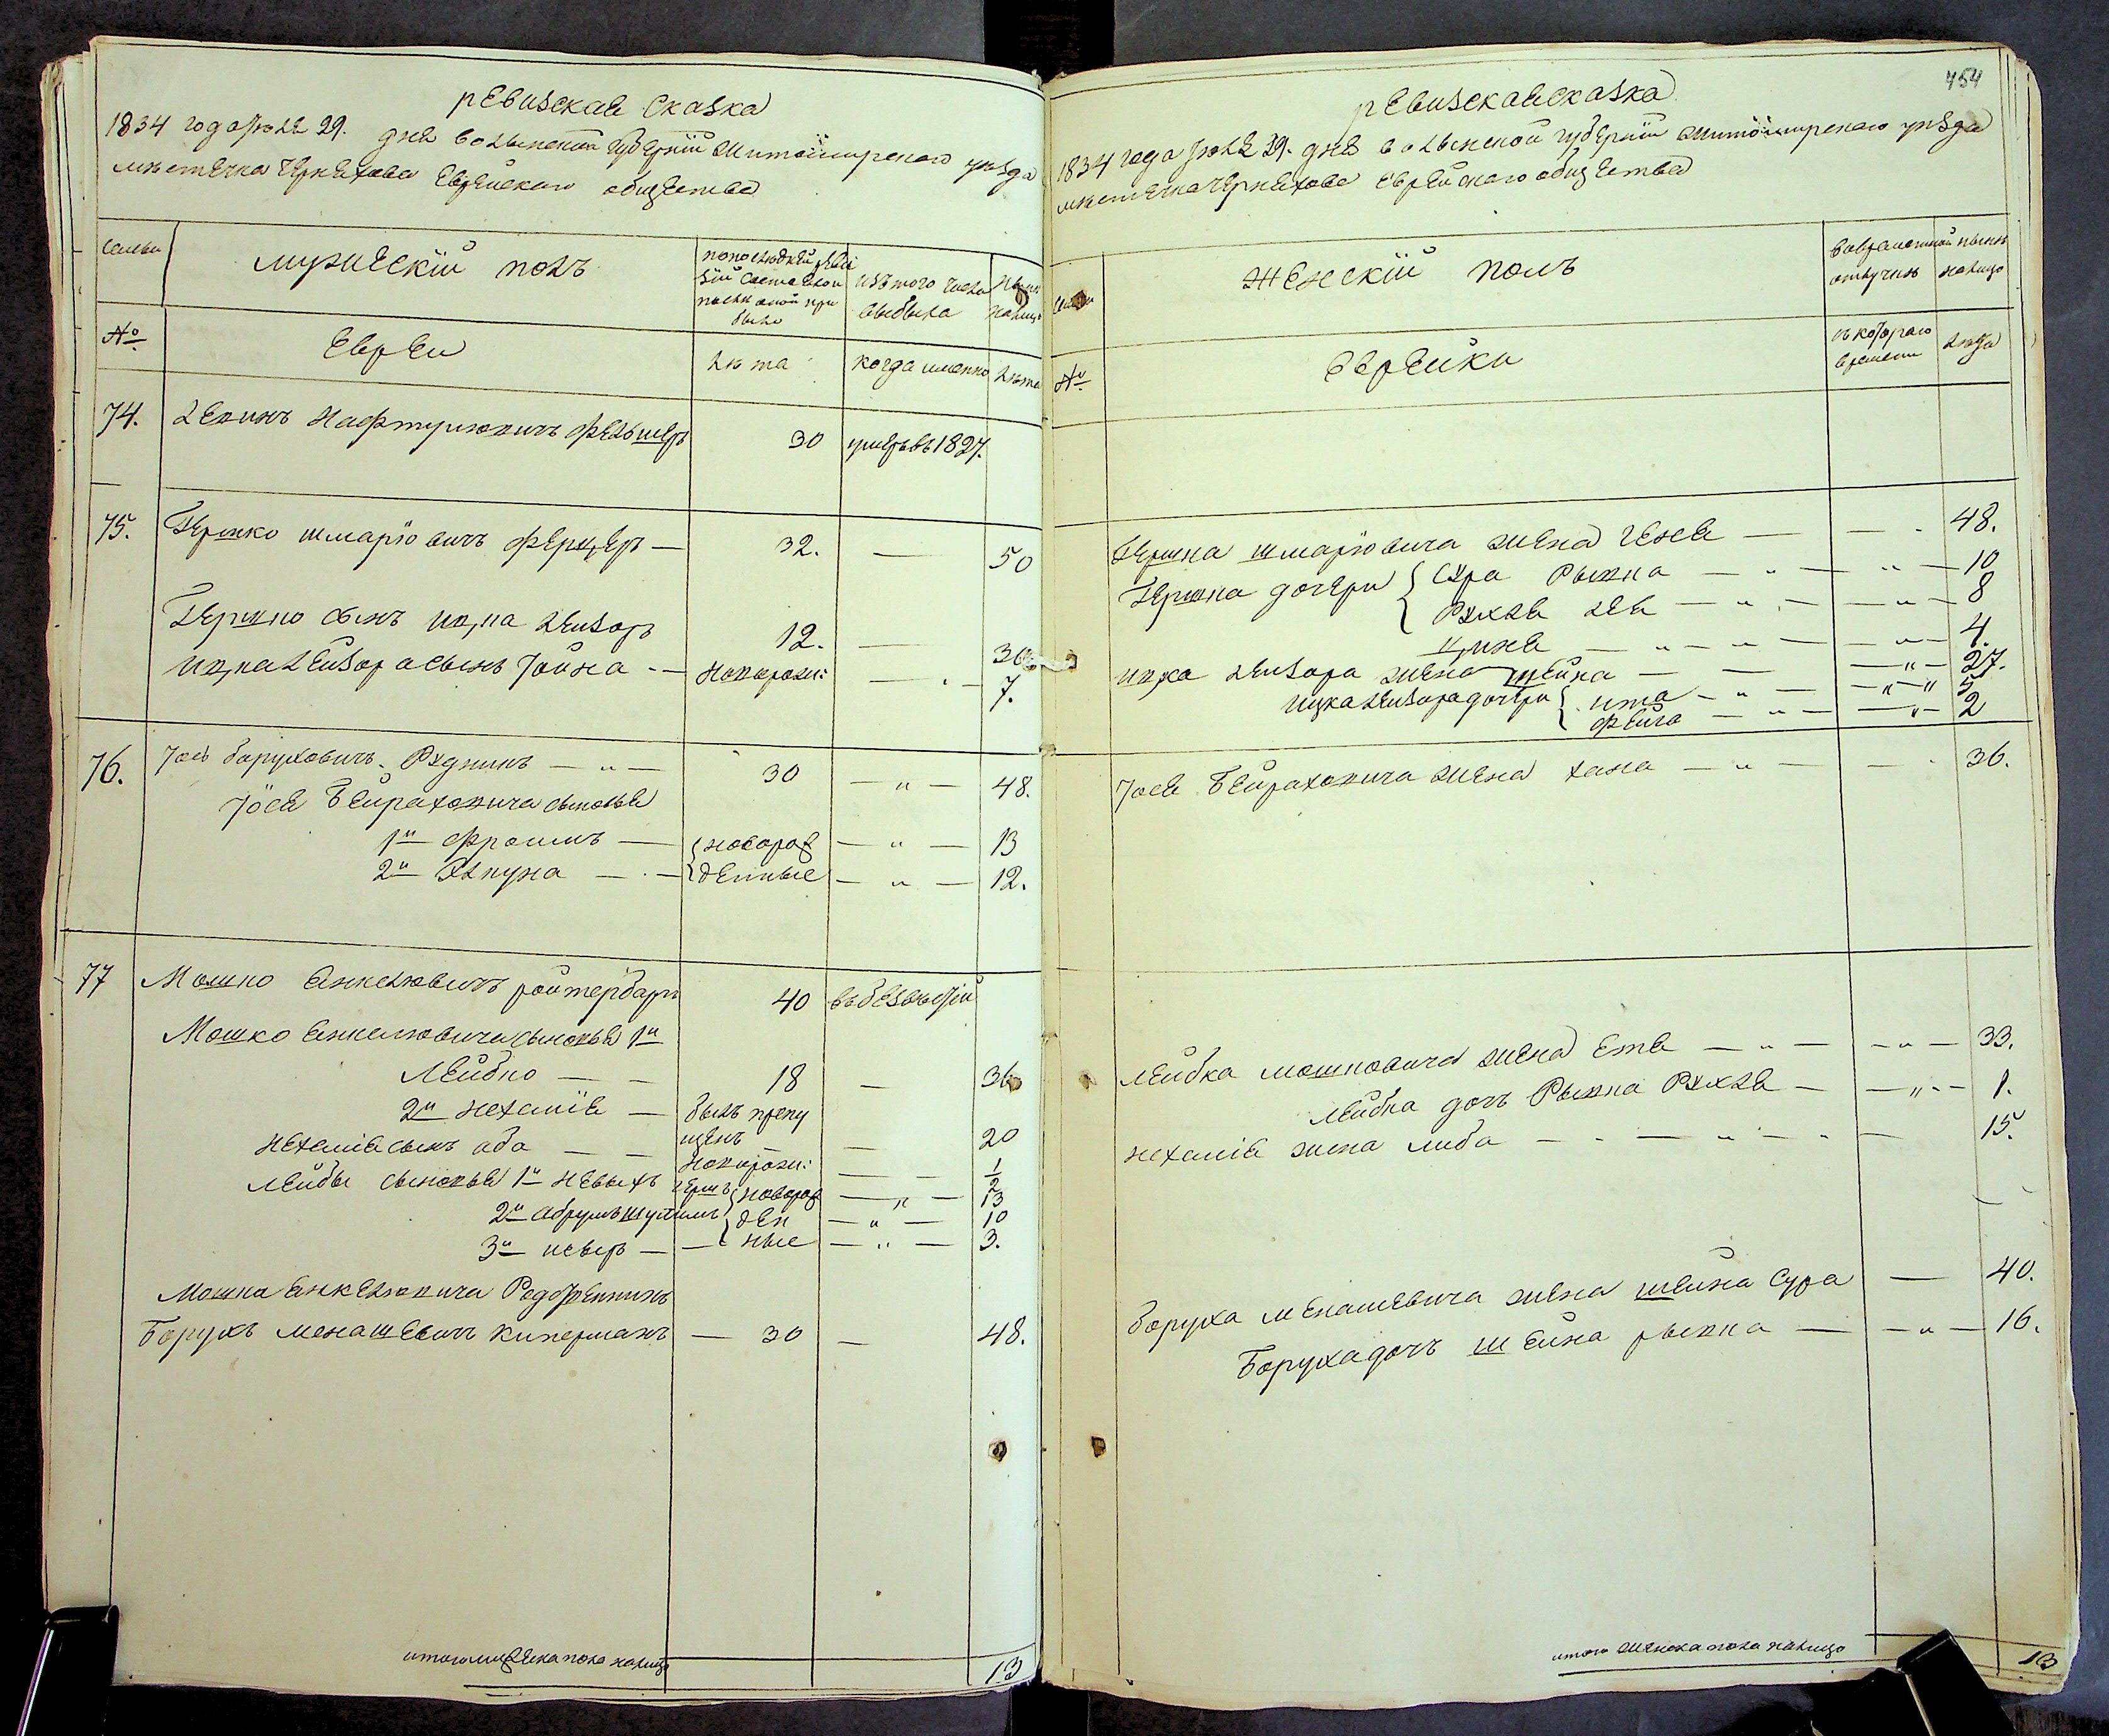 ревизская сказка
1834 года Июля 29. дня волынской губерніи житоимирскаго уезда
мѣстечка Черняхова Еврейскаго общества
семьи
мужескій полъ
по последней реви
зіи состояло и
после оной при
было
изъ того числа
выбыло
ныне
налицо
№
Евреи
лѣта
когда именно
лѣта
74. Левикъ Нафтулювичъ фельшеръ 30 умеръ въ 1827.
75. Гершко шмаріовичъ ферцеръ — 32. — 50
Гершко сынъ ицка лейзоръ 12. — 30
ицка лейзора сынъ Іойна — новорож: — 7.
76. Іось боруховичъ Рудникъ — 30 — 48.
Іося Бейраховича сыновья
1й Фроимъ — новорож — 13
2й Элкуна — денные — 12.
77 Мошко Янкелювичъ ройтербаръ 40 въ безвестіи
Мошко Янкелювича сыновья 1й
Лейбко — 18 — 36
2й нехамія — былъ пропу
щенъ — 20
нехамія сынъ аба — новорож: — 1/2
Лейбы сыновья 1й герш новорож — 13
2й абрумъ шулимъ ден — 10
3й исъеръ — ные — 3.
Мошка Янкелювича
Борухъ менашевичъ киперманъ — 30 — 48.
итого мужеска пола налицо 13
454
ревизская сказка
1834 года Июля 29. дня волынской губерніи житоимирскаго уезда
мѣстечка Черняхова Еврейскаго общества
семьи
Женскій полъ
во временной
отлучкѣ
ныне
налицо
№
Еврейки
съ котораго
времени
лѣта
Гершка шмаріовича жена геня — 48.
Гершка дочери Сура Рывка — 10
Рухля лея — 8
ципя — 4.
ицка лейзора жена шейна — 27.
ицка лейзора дочери ита — 5
фейга — 2
Іося Бейраховича жена хана — 36.
Лейбка мошковича жена Етя — 33.
Лейбка дочь Рывка Рухля — 1.
нехамія жена либа — 15.
боруха менашевича жена шейна Сура — 40.
Боруха дочь шейна рывка — 16.
итого женска пола налицо 13